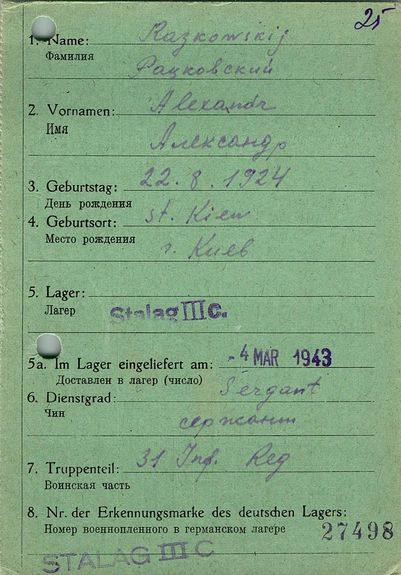 25
1. Name: Razkowskij
Фамилия
Рацковский
2. Vornamen: Alexandr
Имя
Александр
3. Geburtstag: 22.8.1924
День рождения
4. Geburtsort: st. Kiew
Место рождения
г. Киев
5. Lager:
Лагерь
Stalag III C.
5a. Im Lager eingeliefert am: -4 MAR 1943
Доставлен в лагерь (число)
6. Dienstgrad: Sergant
Чин
сержант
7. Truppenteil: 31 Inf. Reg
Воинская часть
8. Nr. der Erkennungsmarke des deutschen Lagers:
Номер военнопленного в германском лагере
27498
STALAG III C